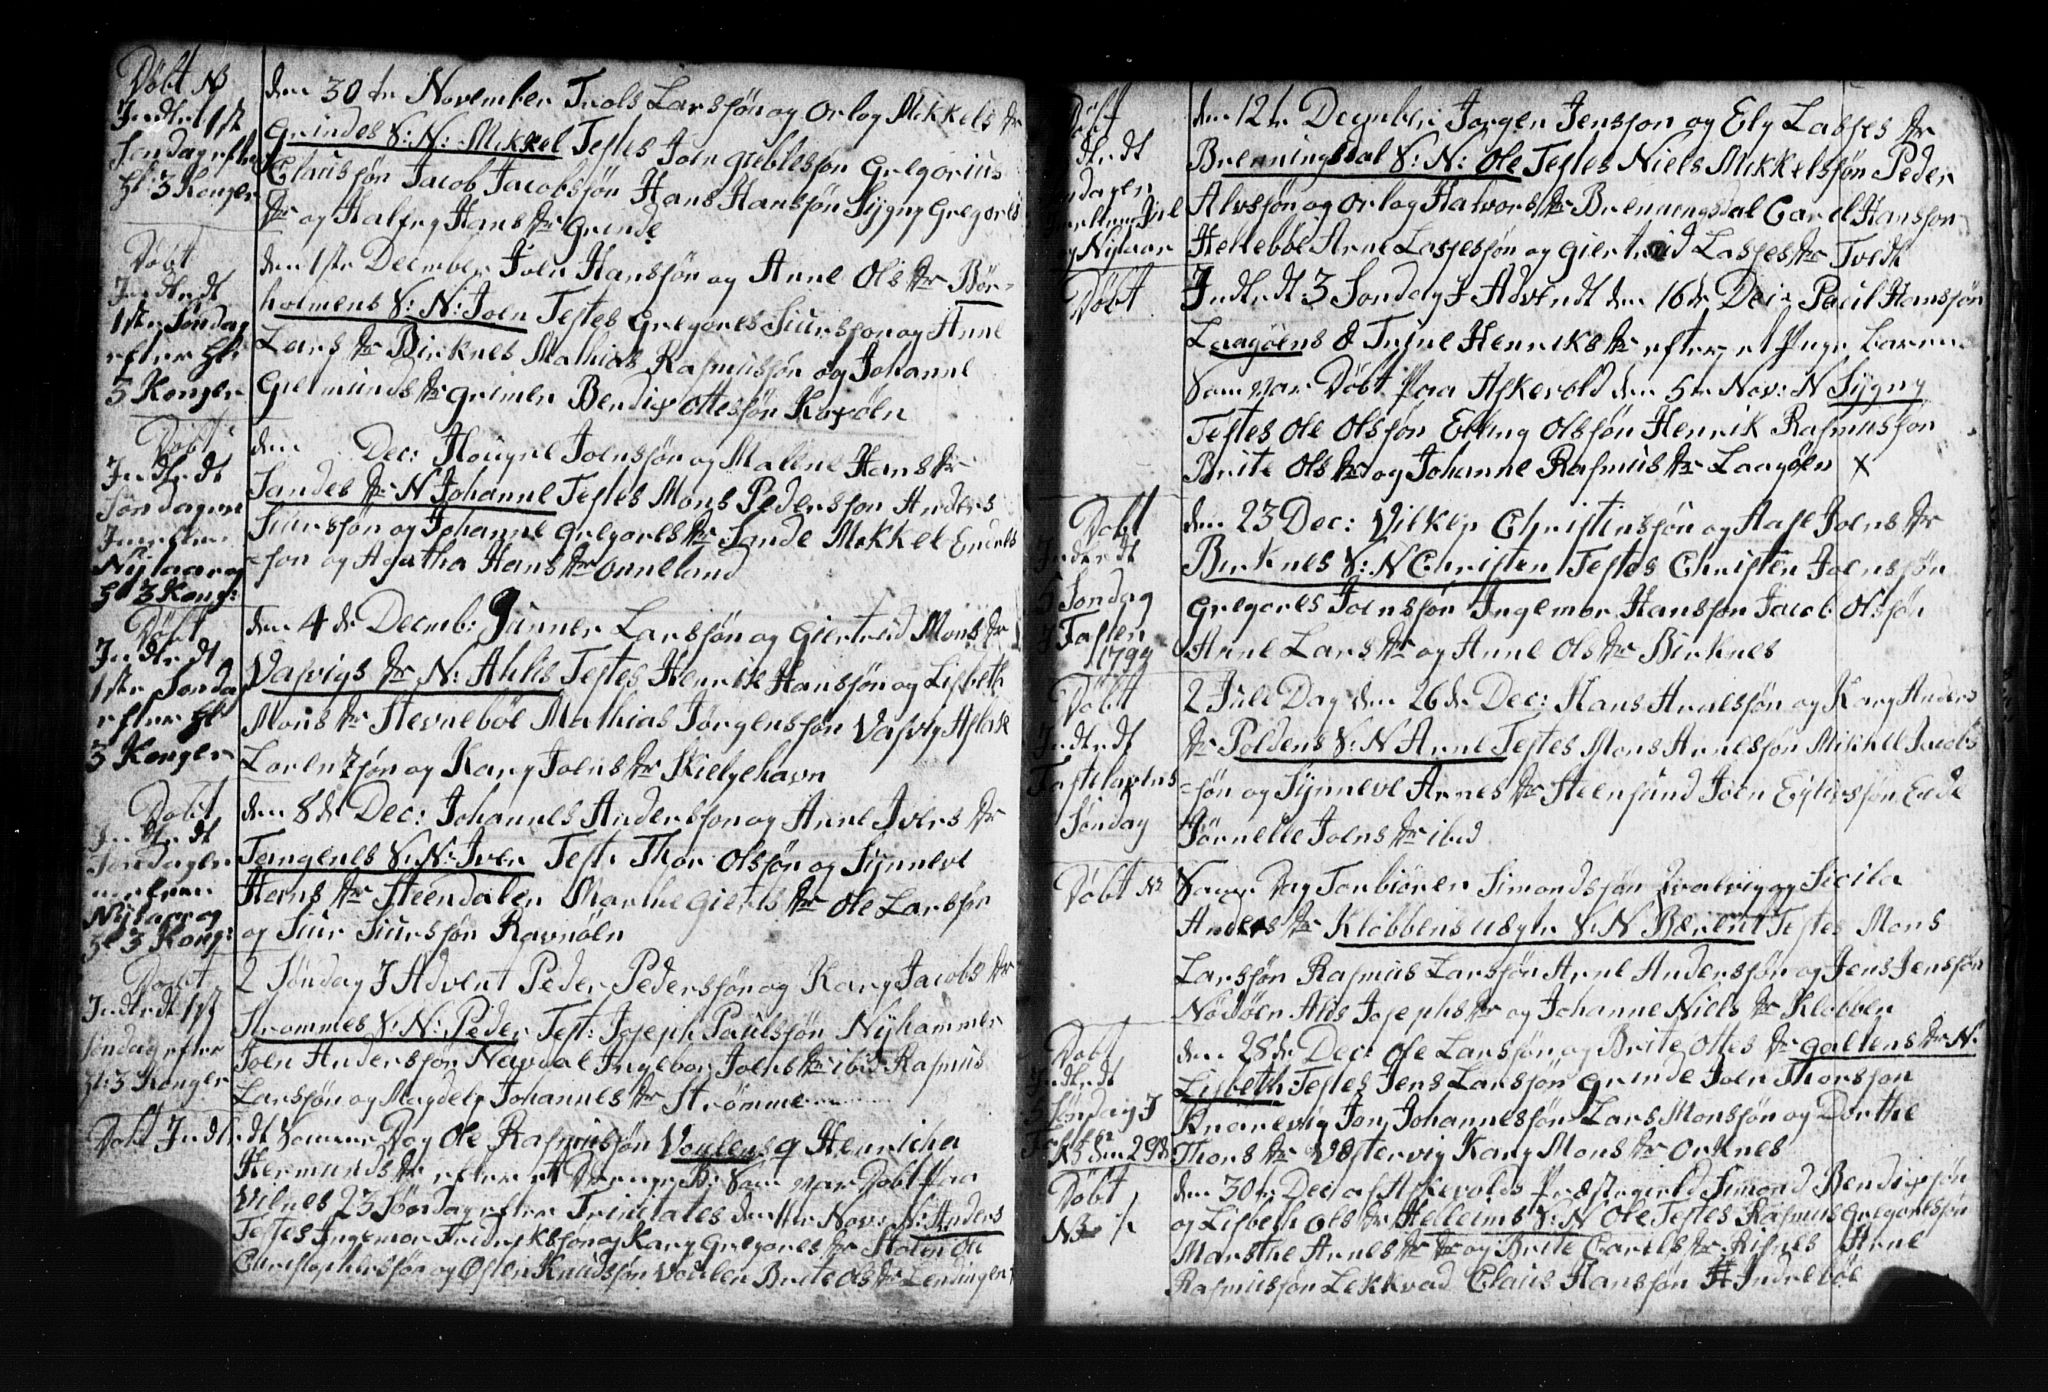 Döbt NB
Indled 1ste
Søndag efter
Hl 3 Konger
den 30te November Truls Larssøn og Orlog Mikkels dtr
Grindes S: N: Mikkel Testes Joen Gieblessøn Gregorius
Claussøn Jacob Jacobssøn Hans Hanssøn Sygny Gregoris
dtr og Kalery Hans dtr Grinde
Döbt
Indledt
1ste Søndag
efter Hl:
3 Konger
den 1ste December Joen Hanssøn og Anne Ols dtr Bör-
holmens S: N: Joen Testes Gregores Siurssøn og Anne
Lars dtr Birknes Mathias Rasmussøn og Johanne
Giermunds dtr Grimen Bendix Ottesøn Koxøln
Döbt
Indledt
Søndagen
Imellem
Nÿtaar og
Hl 3 Kong:
den Dec: Hougne Joenssøn og Malene Hans dtr
Sandes dtr N Johanne Testes Mons Pederssøn Anders
Siurssøn og Johanne Gregores dtr Sande Mikkel Enders
=søn og Agatha Hans dtr Onneland
Döbt
Indledt
1ste Søndag
efter Hl
3 Konger
den 4de Decemb: Gunner Larssøn og Giertrud Mons dtr
Vasvigs dtr N: Ahlis Testes Henrik Hanssøn og Lisbeth
Mons dtr Hevnebøe Mathias Jørgenssøn Vasvig Aslak
Lorentzsøn og Kary Joens dtr Kielgehavn
Döbt
Indledt
Søndagen
imellem
Nÿtaar og
Hl 3 Kong:
den 8de Dec: Johannes Anderssøn og Anne Ivers dtr
Tangenes S: N: Iver Test: Thor Olssøn og Synneve
Hans dtr Steendalen Marthe Gierts dtr Ole Larssøn
og Siur Siurssøn Ravnøln
Döbt
Indledt 1ste
søndag efter
Hl: 3 Konger
2 Søndag I Advent Peder Pederssøn og Kary Jacobs dtr
Strømmes S: N: Peder Test: Joseph Paulssøn Nyhammer
Joen Anderssøn Navdal Ingebor Joens dtr ibid Rasmus
Larssøn og Magdely Johannes dtr Strømme
Döbt Indledt Samme Dag Ole Rasmussøn Voulens & Henricha
Hermunds dtr efter et Drenge B: Som var Døbt Paa
Vilnes 23 Søndag efter Trinitates den 11te Nov: N: Anders
Testes Ingemor Fredrikssøn og Kary Gregores dtr Stolen Ole
Christopherssøn og Østen Knudssøn Voulen Brite Ols dtr Lendingen
Döbt
Indledt
Søndagen
Imellem Jul
og Nÿtaar
den 12te December Jørgen Jenssøn og Ely Lasses dtr
Brenningsdal S: N: Ole Testes Niels Mikkelssøn Peder
Alvssøn og Orlog Halvors dtr Brenningsdal Carel Hanssøn
Hellebøe Arne Lassessøn og Giertrud Lasses dtr Tvedt
Döbt
Indledt 3 Søndag I Advendt den 16de Dec: Paul Hanssøn
Laagøens & Trine Henriks dtr efter et Pige Barn
Som var Døbt Paa Askevold den 5te Nov: N Sygny
Testes Ole Olssøn Elling Olssøn Henrik Rasmussøn
Brite Ols dtr og Johanne Rasmus dtr Laagøen X
Döbt
Indledt
5 Søndag
I Fasten
1799
den 23 Dec: Vilken Christenssøn og Aase Joens dtr
Birknes S: N Christen Testes Christen Joenssøn
Gregores Joenssøn Ingemor Hanssøn Jacob Olssøn
Anne Lars dtr og Anne Ols dtr Birknes
Döbt
Indledt
Fastelavens
Søndag
2 Jule Dag den 26de Dec: Hans Arnessøn og Kary Anders
dtr Poldens S: N Arne Testes Mons Arnessøn Mikkel Jacobs
=søn og Synneve Arnes dtr Steensund Joen Eylerssøn Eide
Pörnelle Joens dtr ibid
Döbt NB
Samme Dag Torbiörn Simondssøn Qvalvig og Sicila
Anders dtr Klobbens uægte S: N Bærent Testes Mons
Larssøn Rasmus Larssøn Arne Anderssøn og Jens Jenssøn
Nodøln Alis Josephs dtr og Johanne Niels dtr Klobben
Döbt
Indledt
Søndag I
Fasten
NB den 29de
den 28de Dec: Ole Larssøn og Brite Ottes dtr Galtens dtr N:
Lisbeth Testes Jens Larssøn Grinde Joen Thorssøn
Knarevig Jon Johannessøn Lars Monssøn og Dorthe
Thors dtr Vestervig Kary Mons dtr Orknes
Döbt
NB
den 30te Dec: af Askevolds Præstegield Simond Bendixsøn
og Lisbeth Ols dtr Helleims S: N Ole Testes Rasmus Gregorissøn
Marethe Arnes dtr og Brite Carels dtr Risnes Arne
Rasmussøn Lekkvad Claus Hanssøn Indrebøe